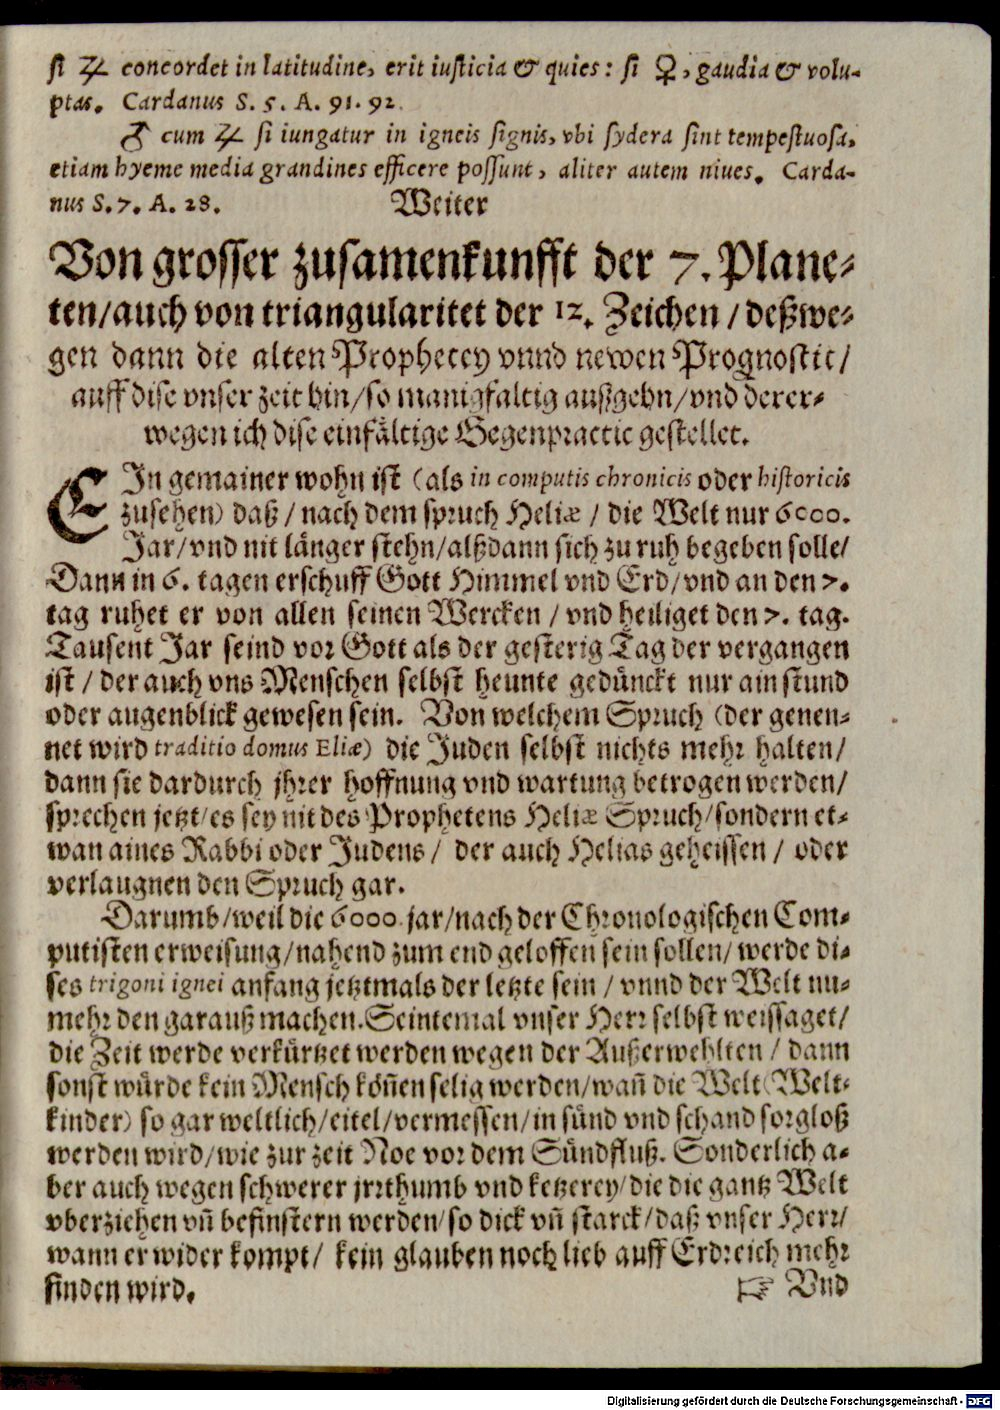 ſi ♃ concordet in latitudine, erit iuſticia & quies: ſi ♀, gaudia & volu-
ptas. Cardanus S. 5. A. 91. 92.
♂ cum ♃ ſi iungatur in igneis ſignis, vbi ſydera ſint tempeſtuoſa,
etiam hyeme media grandines efficere poſſunt, aliter autem niues. Carda-
nus S. 7. A. 28.
Weiter
Von groſſer zuſamenkunfft der 7. Plane-
ten/auch von triangularitet der 12. Zeichen/deßwe-
gen dann die alten Prophecey vnnd newen Prognoſtic/
auff diſe vnſer zeit hin/ſo manigfaltig außgehn/vnd derer-
wegen ich diſe einfältige Gegenpractic geſtellet.
EIn gemainer wohn iſt (als in computis chronicis oder hiſtoricis
zuſehen) daß/nach dem ſpruch Heliæ/die Welt nur 6000.
Jar/vnd nit länger ſtehn/alßdann ſich zu ruh begeben ſolle/
Dann in 6. tagen erſchuff Gott Himmel vnd Erd/vnd an den 7.
tag ruhet er von allen ſeinen Wercken/vnd heiliget den 7. tag.
Tauſent Jar ſeind vor Gott als der geſterig Tag der vergangen
iſt/der auch vns Menſchen ſelbſt heunte gedünckt nur ain ſtund
oder augenblick geweſen ſein. Von welchem Spruch (der genen-
net wird traditio domus Eliæ) die Juden ſelbſt nichts mehr halten/
dann ſie dardurch jhrer hoffnung vnd wartung betrogen werden/
ſprechen jetzt/es ſey nit des Prophetens Heliæ Spruch/ſondern et-
wan aines Rabbi oder Judens/der auch Helias geheiſſen/oder
verlaugnen den Spruch gar.
Darumb/weil die 6000. jar/nach der Chronologiſchen Com-
putiſten erweiſung/nahend zum end geloffen ſein ſollen/werde di-
ſes trigoni ignei anfang jetztmals der letzte ſein/vnnd der Welt nu-
mehr den garauß machen. Seintemal vnſer Herr ſelbſt weiſſaget/
die Zeit werde verkürtzet werden wegen der Außerwehlten/dann
ſonſt würde kein Menſch köñen ſelig werden/wañ die Welt (Welt-
kinder) ſo gar weltlich/eitel/vermeſſen/in ſünd vnd ſchand ſorgloß
werden wird/wie zur zeit Noe vor dem Sündfluß. Sonderlich a-
ber auch wegen ſchwerer jrrthumb vnd ketzerey/die die gantz Welt
vberziehen vñ befinſtern werden/ſo dick vñ ſtarck/daß vnſer Herr/
wann er wider kompt/kein glauben noch lieb auff Erdreich mehr
finden wird.
☞ Vnd
Digitalisierung gefördert durch die Deutsche Forschungsgemeinschaft - DFG